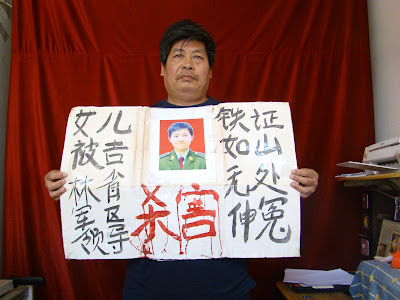 女儿
被吉
林省
军区
领导
杀害
铁证
如山
无处
伸冤